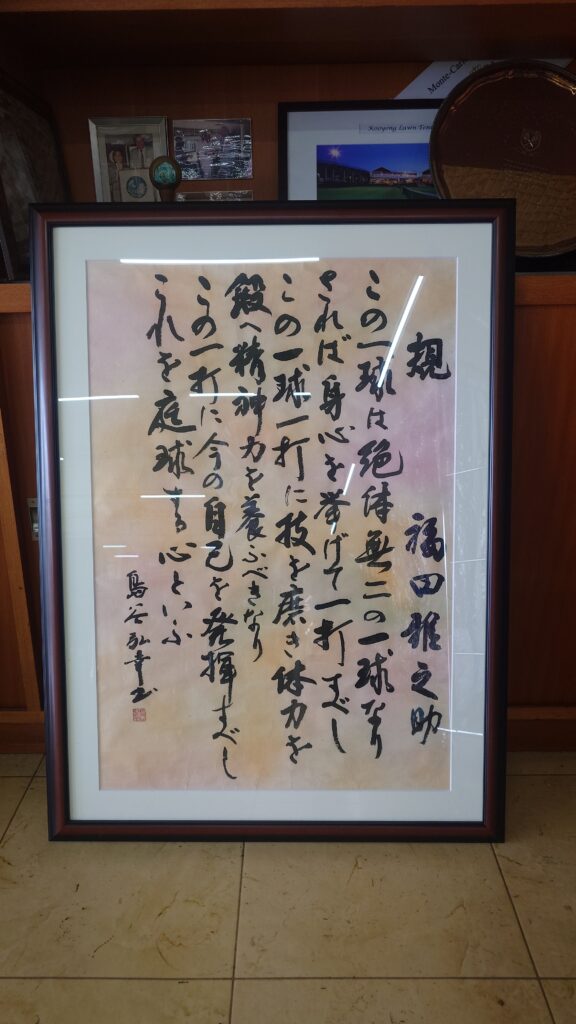 Monte-Car
Kooyong Lawn Ten
規　福田雅之助
この一球は絶体無二の一球なり
されば身心を挙げて一打すべし
この一球一打に技を磨き体力を
鍛へ精神力を養ふべきなり
この一打に今の自己を発揮すべし
これを庭球する心といふ
鳥谷弘幸书